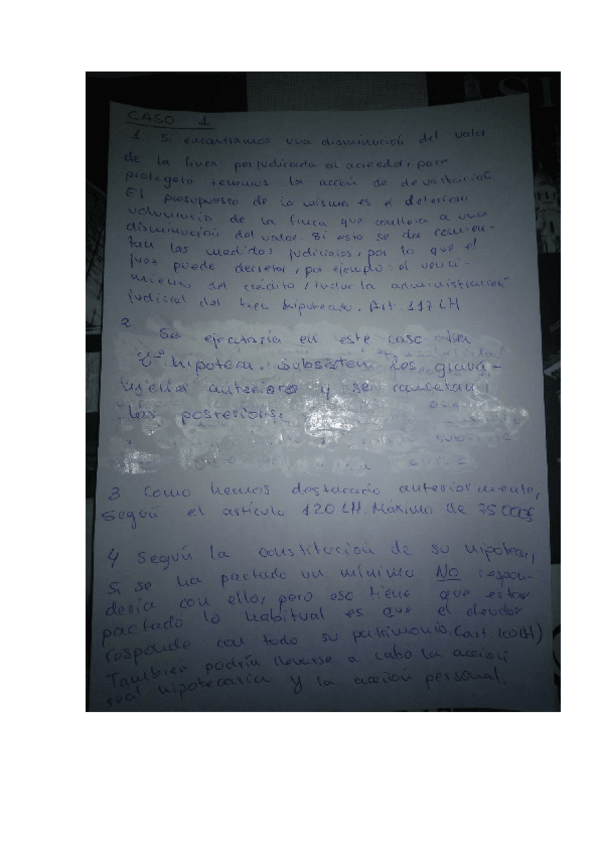 CASO 1
1. Si encontramos una disminución del valor
de la finca perjudicada al acreedor, para
protegerlo tenemos la acción de devastación.
El presupuesto de la misma es el deterioro
voluntario de la finca que conlleva a una
disminución del valor. Si esto se da
las medidas judiciales, por lo que el
juez puede decretar, por ejemplo: el venci-
miento del crédito, incluir la administración
judicial del bien hipotecado. Art. 117 LH
2 Se ejecutaría en este caso una
2ª hipoteca. Subsisten los gravá-
anteriores y se cancelan
las posteriores.
3 Como hemos destacado anteriormente,
según el artículo 120 LH. Máximo de 75000$
4 Según la constitución de su hipoteca,
si se ha pactado un mínimo NO respon-
dería con ello, pero eso tiene que estar
pactado lo habitual es que el deudor
responde con todo su patrimonio.
También podría llevarse a cabo la acción
real hipotecaria y la acción personal.